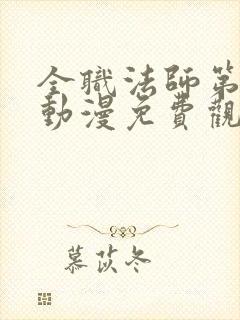 全職法師第
動漫免費觀
慕苡冬